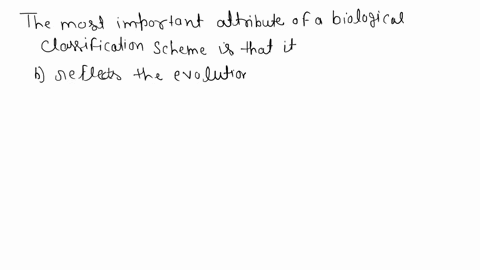 The most important attribute of a biological
classification scheme is that it
b) reflects the evolution